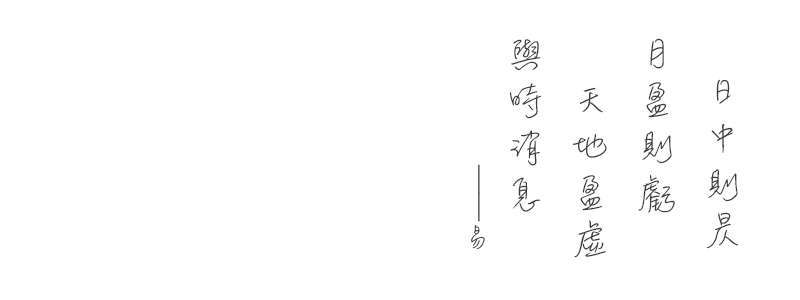 日中則昃
月盈則虧
天地盈虛
與時消息
——易